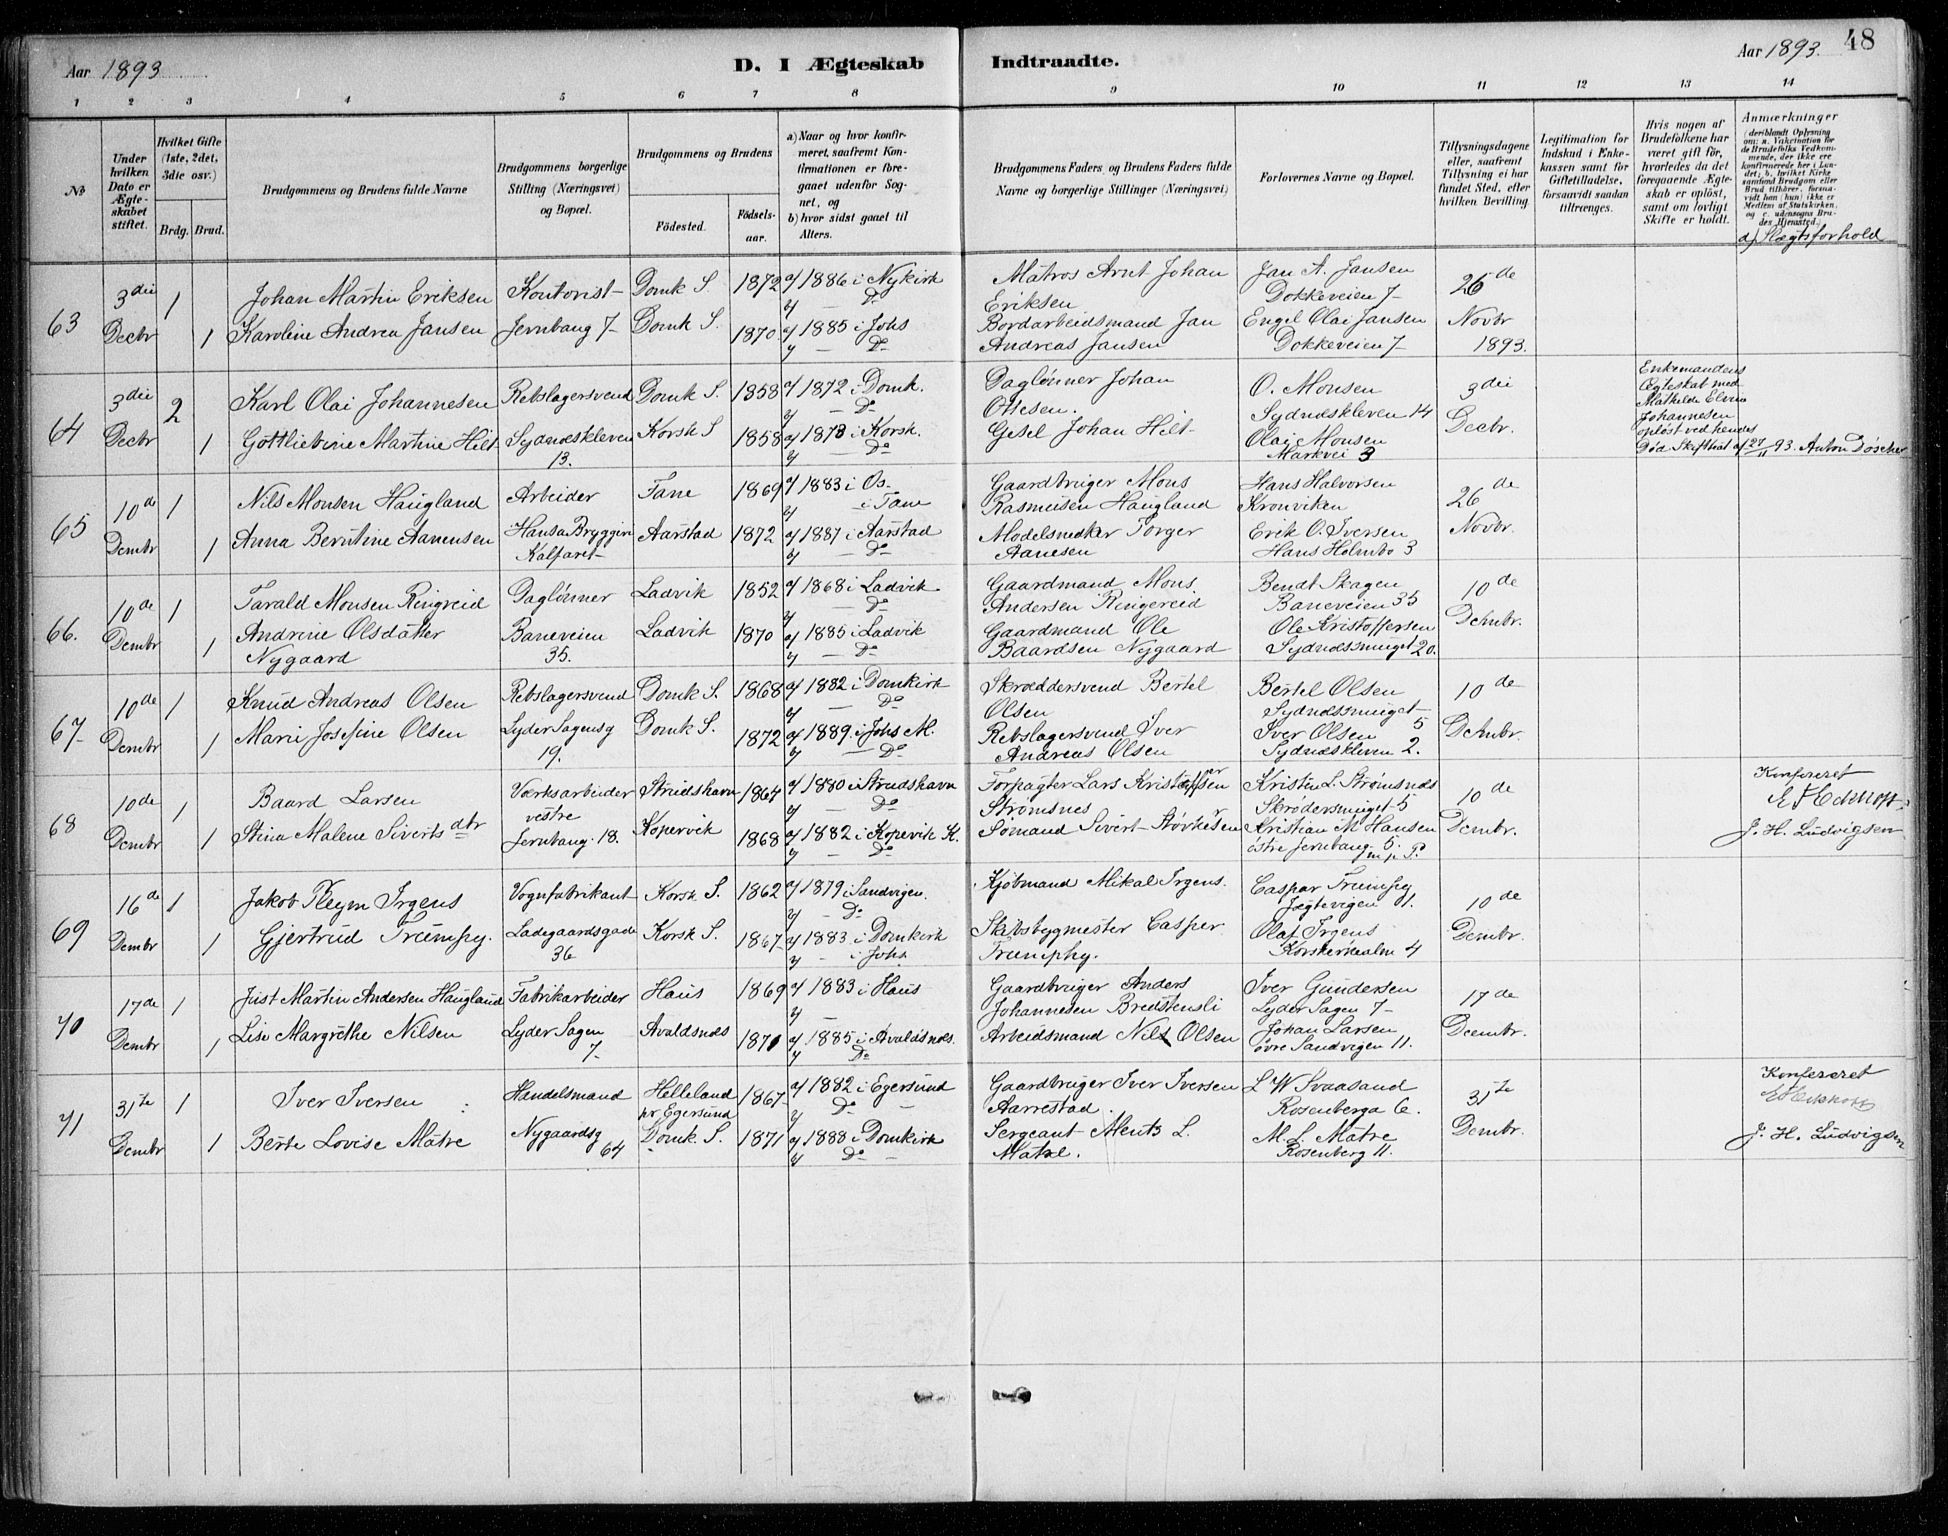 Aar 1893
D. I Ægteskab Indtraadte.
Aar 1893. 48
1 2 3 4 5 6 7 8 9 10 11 12 13 14
№
Under hvilken Dato er Ægteskabet stiftet.
Hvilket Gifte (1ste, 2det, 3die osv.)
Brdg. Brud.
Brudgommens og Brudens fulde Navne
Brudgommens borgerlige Stilling (Næringsvei) og Bopæl.
Brudgommens og Brudens
Födested.
Födselsaar.
a) Naar og hvor konfirmeret, saafremt Konfirmationen er foregaaet udenfor Sognet, og
b) hvor sidst gaaet til Alters.
Brudgommens Faders og Brudens Faders fulde Navne og borgerlige Stillinger (Næringsvei)
Forlovernes Navne og Bopæl.
Tillysningsdagene eller, saafremt Tillysning ei har fundet Sted, efter hvilken Bevilling.
Legitimation for Indskud i Enkekassen samt for Giftetilladelse, forsaavidt saadan tiltrænges.
Hvis nogen af Brudefolkene har været gift för, hvorledes da det foregaaende Ægteskab er oplöst, samt om lovligt Skifte er holdt.
Anmærkninger
(deriblandt Oplysning om: a. Vakcination for de Brudefolks Vedkommende, der ikke ere konfirmerede her i Landet; b. hvilket Kirkesamfund Brudgom eller Brud tilhörer, forsaavidt han (hun) ikke er Medlem af Statskirken, og c. udensogns Brudes Hjemsted.)
d) Slægtsforhold
63 3die Decbr 1 Johan Martin Eriksen Kontorist Domk S. 1872 a/ 1886 i Nykirk Matros Arnt Johan Jan A. Jansen 26de
y — Do Eriksen Dokkeveien 7
1 Karoline Andrea Jansen Jernbang 7 Domk S. 1870 a/ 1885 i Johs Bordarbeidsmand Jan Engel Olai Jansen Novbr
y — Do Andreas Jansen Dokkeveien 7 1893.
64 3die Decbr 2 Karl Olai Johannesen Rebslagersvend Domk S. 1858 a/ 1872 i Domk. Daglønner Johan O. Monsen 3die Enkemandens Ægteskab med Mathilde
y — Do Ottesen. Sydnæskleven 14 Johannesen
1 Gottliebine Martine Hilt Sydnæskleven Korsk S 1858 a/ 1873 i Korsk. Gesel Johan Hilt Olai Monsen Decbr. opløst ved hendes
13. y — Do Markvei 3 Død Skifteat af 27/11 93. Anton Døscher
65 10de Dembr 1 Nils Monsen Haugland Arbeider Fane 1869 a/ 1883 i Os. Gaardbruger Mons Hans Halvorsen 26de
y i Fane Rasmusen Haugland Kronviken
1 Anna Berntine Aanensen Hansa Bryggeri Aarstad 1872 a/ 1887 i Aarstad Modelsnedker Torger Erik O. Iversen Novbr.
Kalfaret y — Do Aanesen Hans Holmbo 3
66. 10de Dembr 1 Tarald Monsen Ringreid Daglønner Ladvik 1852 a/ 1868 i Ladvik Gaardmand Mons Bendt Skagen 10de
y — Do Andersen Ringereid Baneveien 35
1 Andrine Olsdatter Baneveien Ladvik 1870 a/ 1885 i Ladvik Gaardmand Ole Ole Kristoffersen Dcmbr.
Nygaard 35. y — Do Baardsen Nygaard Sydnæssmuget 20.
67 10de Dembr 1 Knud Andreas Olsen Rebslagersvend Domk S. 1868 a/ 1882 i Domkirk Skræddersvend Bertel Bertel Olsen 10de
y — Do Olsen Sydnæssmuget 5
1 Marie Josefine Olsen Lyder Sagensg Domk S. 1872 a/ 1889 i Johs M. Rebslagersvend Iver Iver Olsen Dcmbr.
19. y — Do Andreas Olsen Sydnæskleven 2.
68 10de Dembr 1 Baard Larsen Værksarbeider Strudshavn 1864 a/ 1880 i Strudshavn Forpagter Lars Kristoffersen Kristen L. Strømsnæs 10de Konfereret
vestre y — Do Strømsnes Skrædersmuget 5 E F Eckhoff
1 Stina Malene Siverts dtr Jernbang. 18. Kopervik 1868 a/ 1882 i Kopevik K. Sømand Sivert Størkesen Kristian M Hansen Dembr. J. H. Ludvigsen
y — Do østre Jernbang 5.
69 16de Dembr 1 Jakob Pleym Irgens Vognfabrikant Korsk S. 1862 a/ 1879 i Sandvigen. Kjøbmand Mikal Irgens. Caspar Trumpy 10de
y — Do Jægtevigen 1.
1 Gjertrud Trumpy. Ladegaardsgade Korsk S. 1867 a/ 1883 i Domkirk Skibsbygmester Casper Olaf Irgens Dembr.
36 y — i Johs Trumphy. Korskirkealm 4
70 17de Dembr 1 Just Martin Andersen Haugland Fabrikarbeider Haus 1869 a/ 1883 i Haus Gaardbruger Anders Iver Gundersen 17de
y — Johannesen Bredstensli Lyder Sagen 7
1 Lise Margrethe Nilsen Lyder Sagen Avaldsnæs 1871 a/ 1885 i Avaldsnæs. Arbeidsmand Nils Olsen Johan Larsen Dcembr.
7 y Do øvre Sandvigen 11.
71 31te Dembr 1 Iver Iversen Handelsmand Helleland 1867 a/ 1882 i Egersund Gaardbruger Iver Iversen L W Svaasand 31te Konfereret
pr Egersund y Do — Aarrestad. Rosenberga 6. E F Eckhoff
1 Berte Lovise Matre Nygaardsg Domk S. 1871 a/ 1888 i Domkirk Sergeant Ments L. M. L. Matre Dembr. J. H. Ludvigsen
64 y Do — Matre. Rosenberg 11.